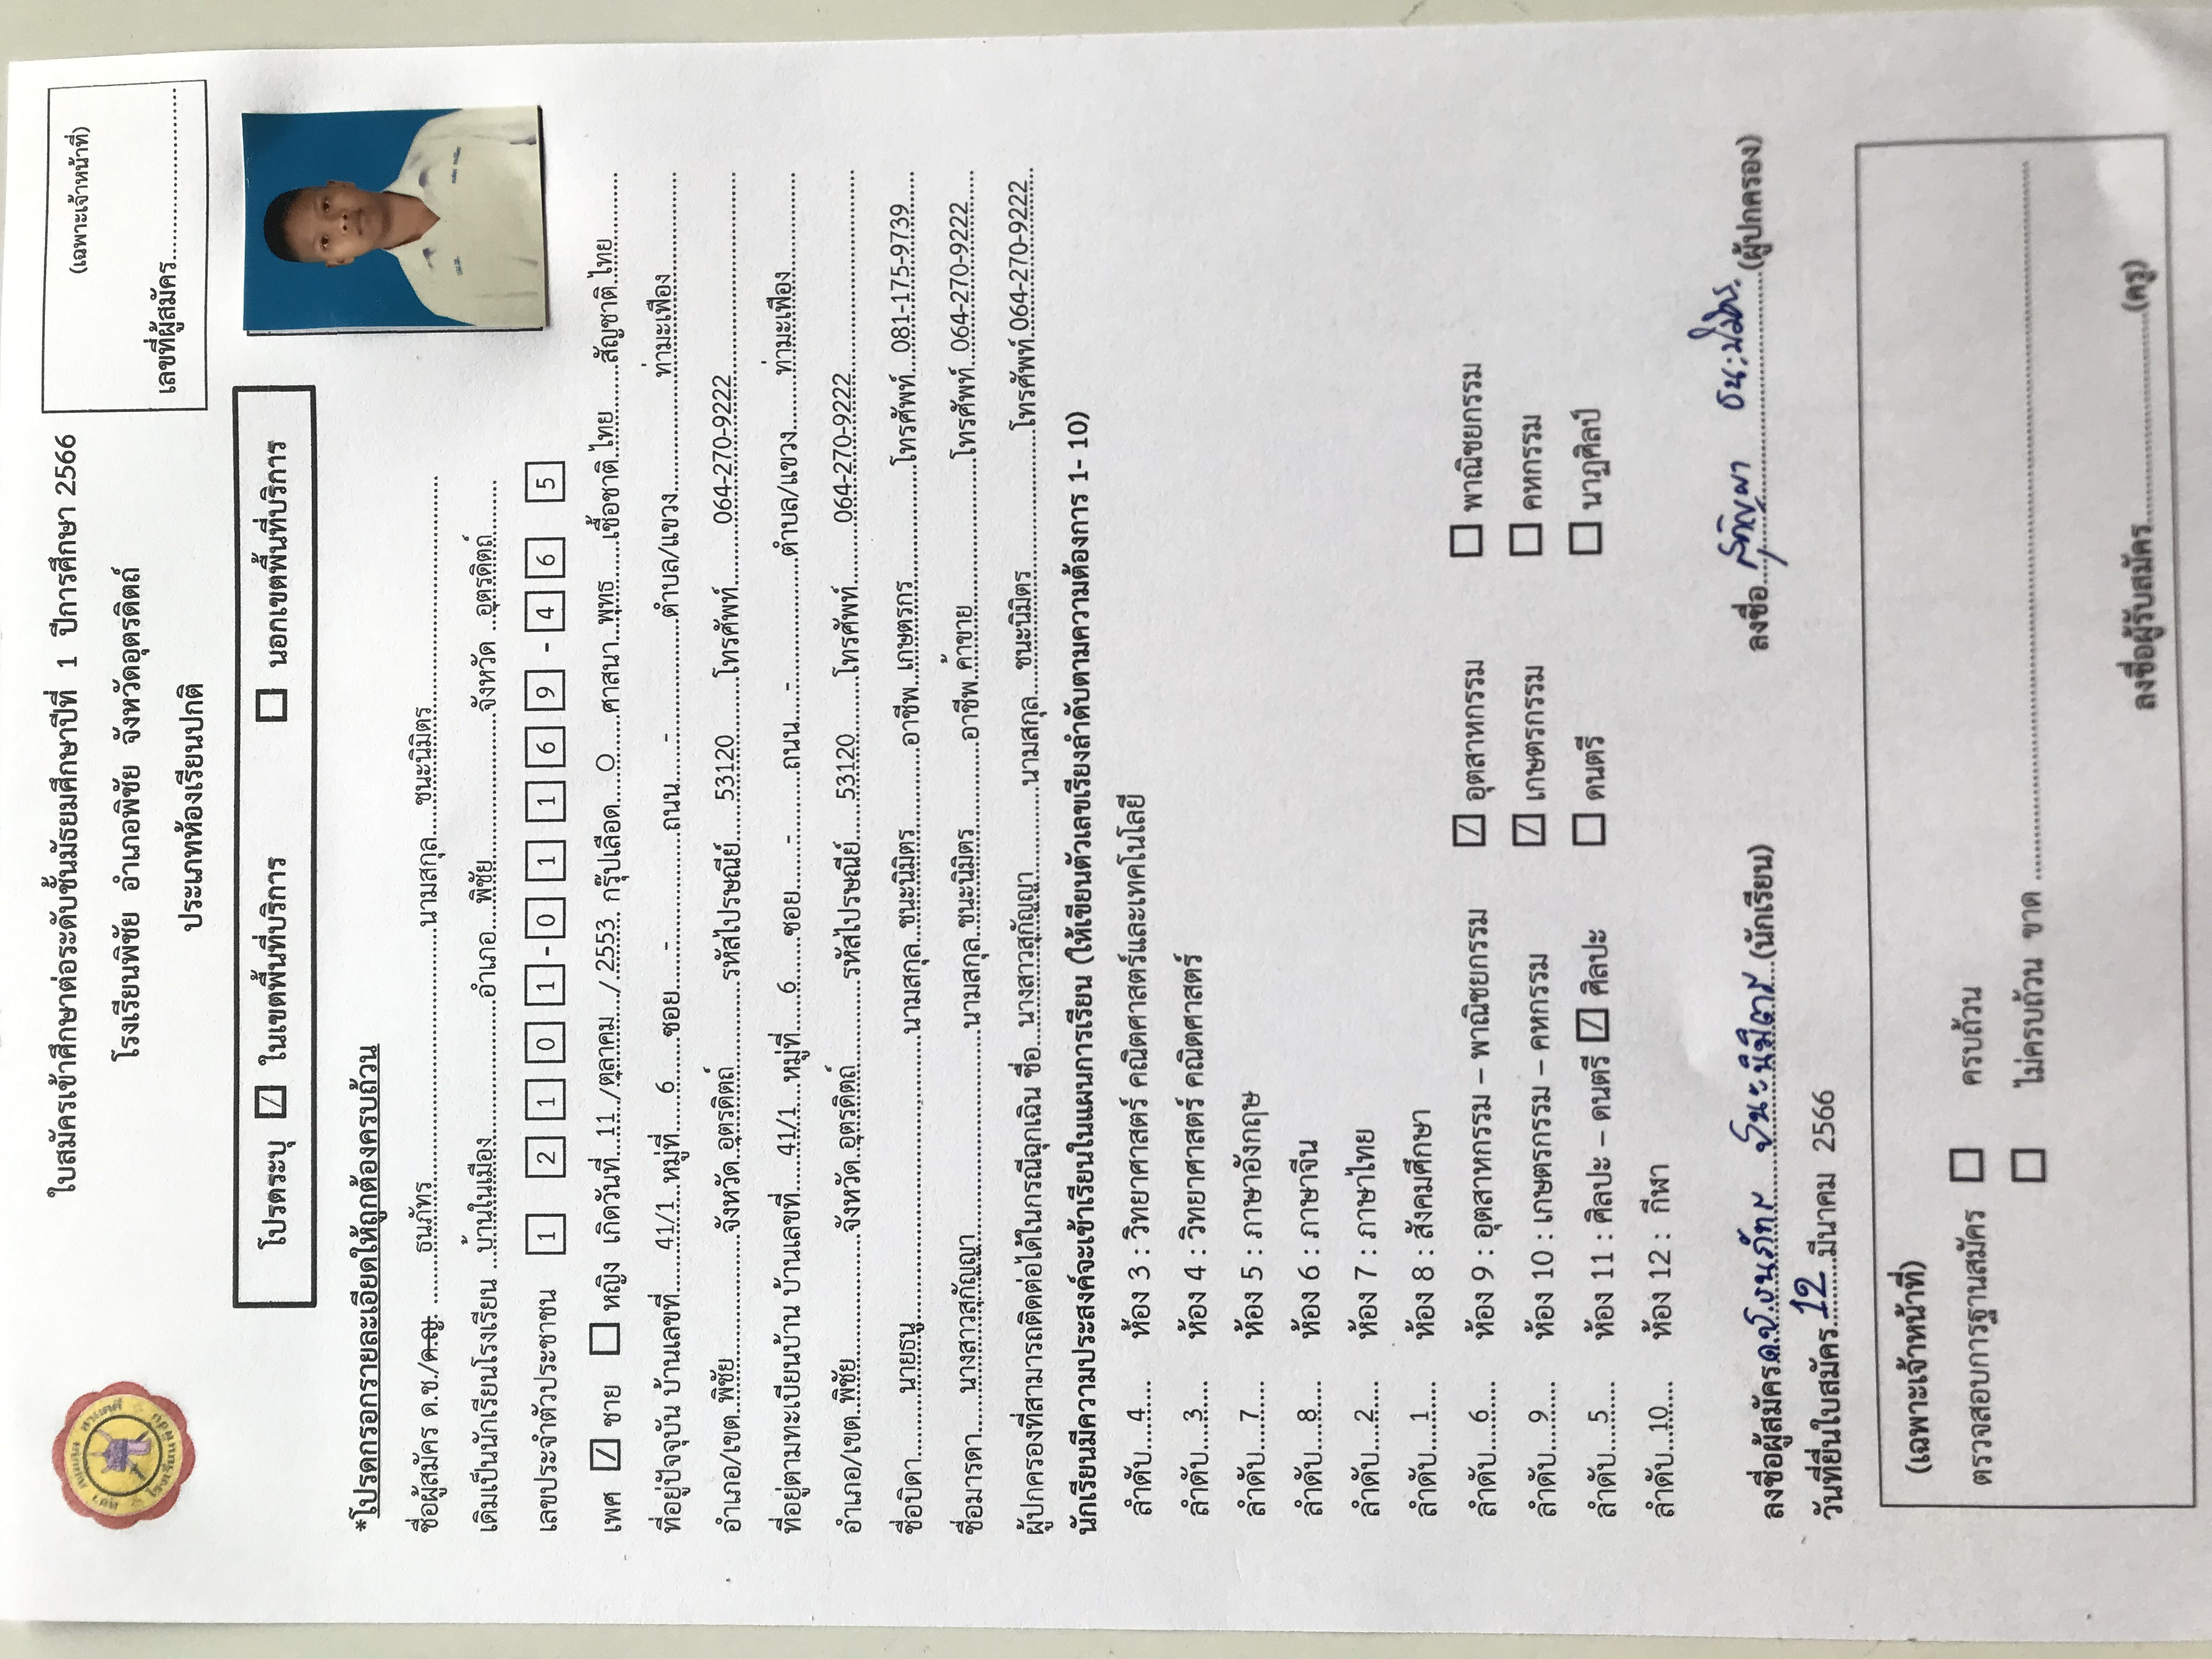 (เฉพาะเจ้าหน้าที่)
เลขที่ผู้สมัคร..............................
ใบสมัครเข้าศึกษาต่อระดับชั้นมัธยมศึกษาปีที่ 1 ปีการศึกษา 2566
โรงเรียนพิชัย อำเภอพิชัย จังหวัดอุตรดิตถ์
ประเภทห้องเรียนปกติ
โปรดระบุ ☑ ในเขตพื้นที่บริการ ☐ นอกเขตพื้นที่บริการ
*โปรดกรอกรายละเอียดให้ถูกต้องครบถ้วน
ชื่อผู้สมัคร ด.ช./ด.ญ. ......ธนภัทร..............................นามสกุล.....ชนะนิมิตร..............................
เดิมเป็นนักเรียนโรงเรียน ...บ้านในเมือง....................อำเภอ....พิชัย....................จังหวัด ...อุตรดิตถ์..........
เลขประจำตัวประชาชน 1 2 1 0 1 - 0 1 1 6 9 - 4 6 5
เพศ ☑ ชาย ☐ หญิง เกิดวันที่...11.../ตุลาคม..../ 2553.. กรุ๊ปเลือด....O......ศาสนา...พุทธ......เชื้อชาติ.ไทย........สัญชาติ.ไทย..........
ที่อยู่ปัจจุบัน บ้านเลขที่......41/1...หมู่ที่.....6......ซอย.....-..............ถนน......-..............ตำบล/แขวง..............ท่ามะเฟือง..............
อำเภอ/เขต..พิชัย..............จังหวัด..อุตรดิตถ์..............รหัสไปรษณีย์......53120........โทรศัพท์..........064-270-9222..............................
ที่อยู่ตามทะเบียนบ้าน บ้านเลขที่......41/1...หมู่ที่.....6......ซอย.....-..............ถนน.....-..............ตำบล/แขวง........ท่ามะเฟือง..............
อำเภอ/เขต..พิชัย..............จังหวัด..อุตรดิตถ์..............รหัสไปรษณีย์......53120........โทรศัพท์..........064-270-9222..............................
ชื่อบิดา..........นายธนู..............................นามสกุล..ชนะนิมิตร..............อาชีพ...เกษตรกร..............โทรศัพท์...081-175-9739......
ชื่อมารดา........นางสาวสุกัญญา..............................นามสกุล..ชนะนิมิตร..............อาชีพ..ค้าขาย..............โทรศัพท์...064-270-9222......
ผู้ปกครองที่สามารถติดต่อได้ในกรณีฉุกเฉิน ชื่อ....นางสาวสุกัญญา..............นามสกุล.....ชนะนิมิตร..............โทรศัพท์.064-270-9222..
นักเรียนมีความประสงค์จะเข้าเรียนในแผนการเรียน (ให้เขียนตัวเลขเรียงลำดับตามความต้องการ 1- 10)
ลำดับ......4..... ห้อง 3 : วิทยาศาสตร์ คณิตศาสตร์และเทคโนโลยี
ลำดับ......3..... ห้อง 4 : วิทยาศาสตร์ คณิตศาสตร์
ลำดับ......7..... ห้อง 5 : ภาษาอังกฤษ
ลำดับ......8..... ห้อง 6 : ภาษาจีน
ลำดับ......2..... ห้อง 7 : ภาษาไทย
ลำดับ......1..... ห้อง 8 : สังคมศึกษา
ลำดับ......6..... ห้อง 9 : อุตสาหกรรม – พาณิชยกรรม ☑ อุตสาหกรรม ☐ พาณิชยกรรม
ลำดับ......9..... ห้อง 10 : เกษตรกรรม – คหกรรม ☑ เกษตรกรรม ☐ คหกรรม
ลำดับ......5..... ห้อง 11 : ศิลปะ – ดนตรี ☑ ศิลปะ ☐ ดนตรี ☐ นาฏศิลป์
ลำดับ...10..... ห้อง 12 : กีฬา
ลงชื่อผู้สมัคร ด.ช.ธนภัทร ชนะนิมิตร (นักเรียน) ลงชื่อ.....สุกัญญา ชนะนิมิตร (ผู้ปกครอง)
วันที่ยื่นใบสมัคร...12...มีนาคม 2566
(เฉพาะเจ้าหน้าที่)
ตรวจสอบการฐานสมัคร ☐ ครบถ้วน
☐ ไม่ครบถ้วน ขาด ..............................
ลงชื่อผู้รับสมัคร..............................(ครู)